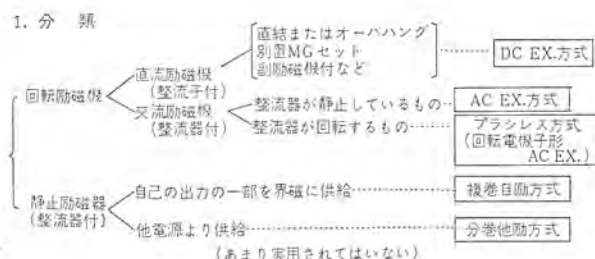 1. 分 類
直結またはオーバハング
別置MGセット
副励磁機付など
DC EX.方式
直流励磁機
(整流子付)
回転励磁機
交流励磁機
(整流器付)
整流器が静止しているもの
AC EX.方式
整流器が回転するもの
ブラシレス方式
(回転電機子形
AC EX.)
静止励磁器
(整流器付)
自己の出力の一部を界磁に供給
複巻自励方式
他電源より供給
分巻他励方式
(あまり実用されてはいない)